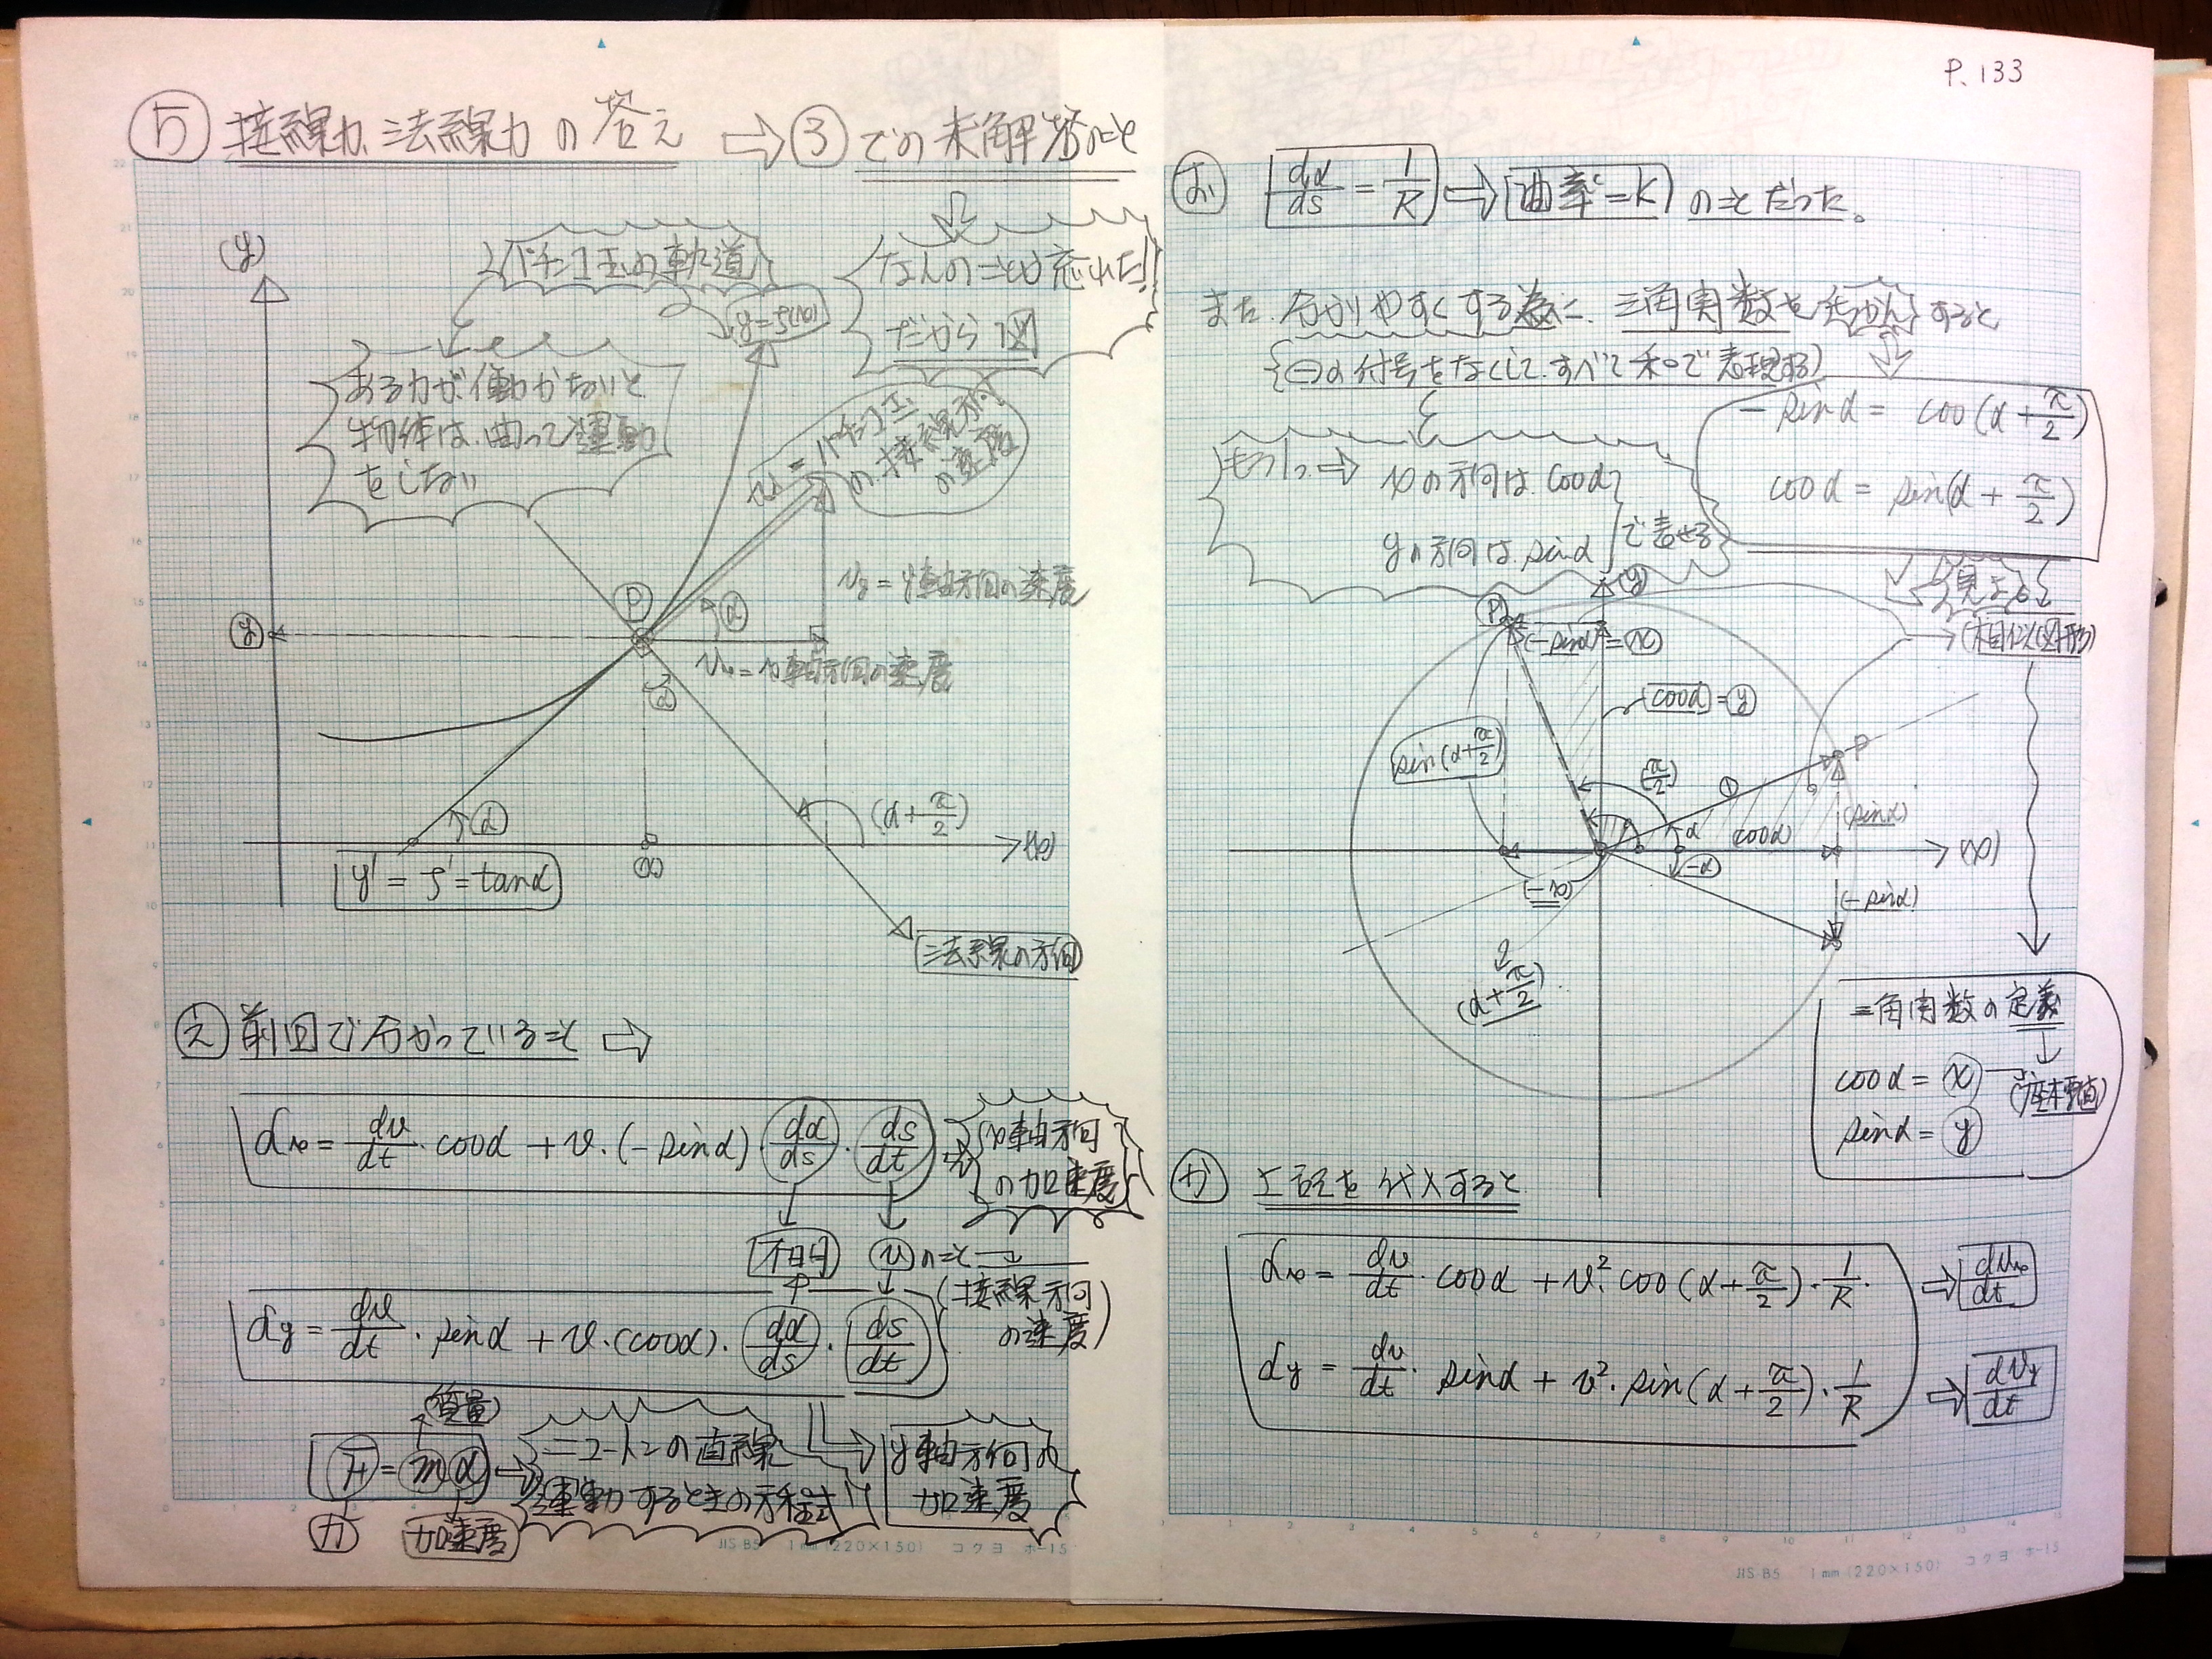 P.133
⑤ 接線力、法線力の答え ⇨ ③での未解答のこと
なんのことか忘れた!
だから図
パチンコ玉の軌道
y=f(x)
(y)
ある力が働かないと
物体は、曲って運動
をしない
v = パチンコ玉
の接線方向
の速度
P
α
vy = y軸方向の速度
y
vx = x軸方向の速度
α
(α+π/2)
α
(x)
x
y' = f' = tanα
法線の方向
え 前回で分かっていること ⇨
αx = dv/dt・cosα + v・(-sinα)・dα/ds・ds/dt
x軸方向
の加速度
不明
vのこと
接線方向
の速度
αy = dv/dt・sinα + v・(cosα)・dα/ds・ds/dt
質量
F = mα
ニュートンの直線
運動するときの方程式
y軸方向の
加速度
力
加速度
JIS-B5 1mm(220×150) コクヨ ホ-15
お dα/ds = 1/R ⇨ 曲率=K のことだった。
また、分かりやすくする為に、三角関数を
⊖の符号をなくして、すべて和で表現する
-sinα = cos(α+π/2)
cosα = sin(α+π/2)
xの方向は、cosα
yの方向は、sinα
で表せる
見よ
(y)
P
(-sinα)=x
(相似図形)
cosα=y
sin(α+π/2)
(π/2)
P
1
α
cosα
(sinα)
(x)
(-x)
(-α)
(-sinα)
(α+π/2)
三角関数の定義
cosα = x
(座標値)
sinα = y
か 上記を代入すると
αx = dv/dt・cosα + v²・cos(α+π/2)・1/R ⇨ dvx/dt
αy = dv/dt・sinα + v²・sin(α+π/2)・1/R ⇨ dvy/dt
JIS-B5 1mm(220×150) コクヨ ホ-15